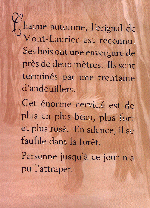 Chaque automne, l'orignal du
Mont-Laurier est reconnu.
Ses bois ont une envergure de
près de deux mètres. Ils sont
terminés par une trentaine
d'andouillers.
Cet énorme cervidé est de
plus en plus beau, plus fier
et plus rosé. En silence, il se
faufile dans la forêt.
Personne jusqu'à ce jour n'a
pu l'attraper.